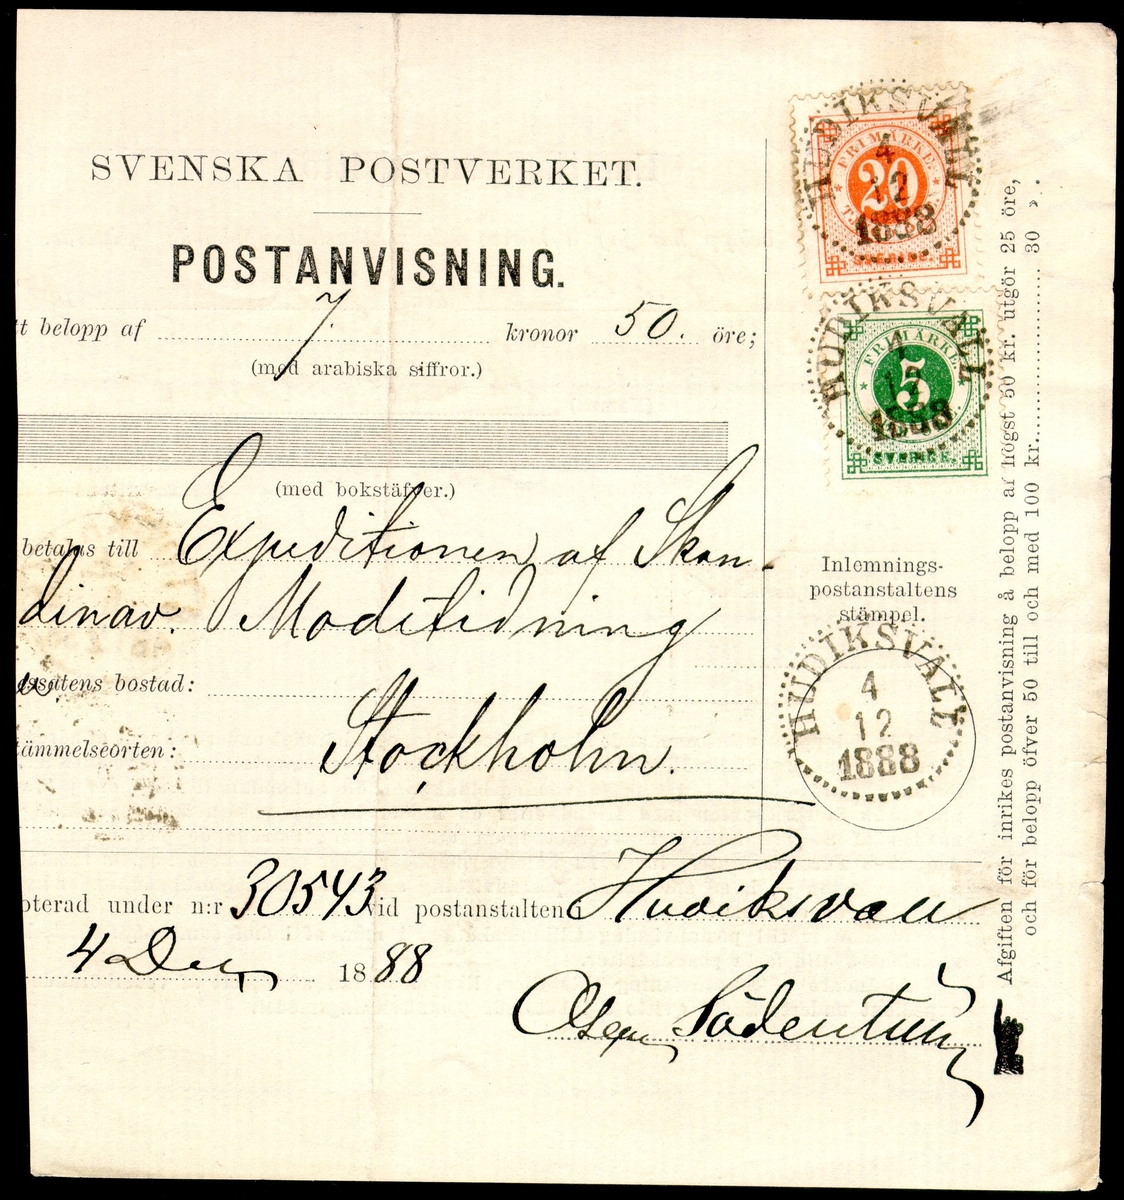 SVENSKA POSTVERKET.
POSTANVISNING.
tt belopp af 7. kronor 50. öre;
(med arabiska siffror.)
(med bokstäfver.)
betalas till Expeditionen af Skan-
dinav. Modetidning
essatens bostad:
tämmelseorten: Stockholm.
oterad under n:r 30543 vid postanstalten Hudiksvall
4 Dec 1888
Söderlund
HUDIKSVALL
4
12
1888
FRIMÄRKE
20
SVERIGE.
HUDIKSVALL
4
12
1888
FRIMÄRKE
5
SVERIGE.
Inlemnings-
postanstaltens
stämpel.
HUDIKSVALL
4
12
1888
Afgiften för inrikes postanvisning å belopp af högst 50 kr. utgör 25 öre,
och för belopp öfver 50 till och med 100 kr. 30 ».